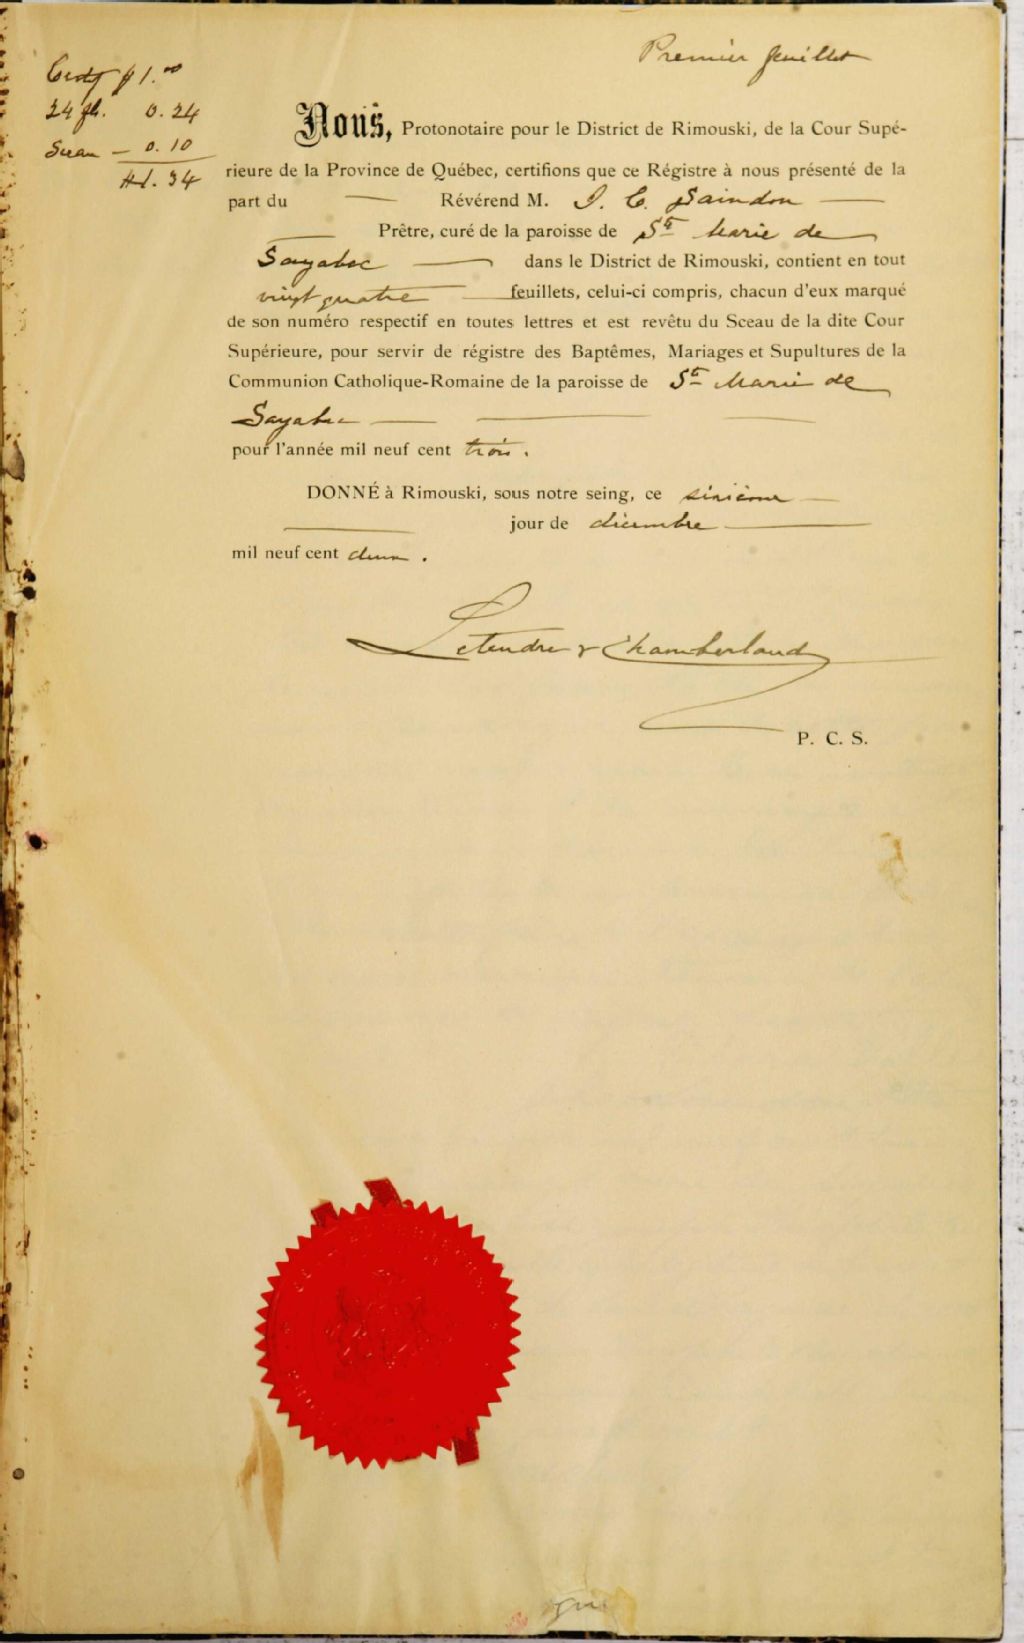 Premier feuillet
Certif $1.00
24 fts. 0.24
Sceau — 0.10
$1.34
Nous, Protonotaire pour le District de Rimouski, de la Cour Supé-
rieure de la Province de Québec, certifions que ce Régistre à nous présenté de la
part du — Révérend M. J. C. Saindon —
— Prêtre, curé de la paroisse de Ste Marie de
Sayabec — dans le District de Rimouski, contient en tout
vingt quatre — feuillets, celui-ci compris, chacun d'eux marqué
de son numéro respectif en toutes lettres et est revêtu du Sceau de la dite Cour
Supérieure, pour servir de régistre des Baptêmes, Mariages et Supultures de la
Communion Catholique-Romaine de la paroisse de Ste Marie de
Sayabec — — —
pour l'année mil neuf cent trois.
DONNÉ à Rimouski, sous notre seing, ce sixième —
— jour de décembre —
mil neuf cent deux.
Letendre & Chamberland
P. C. S.